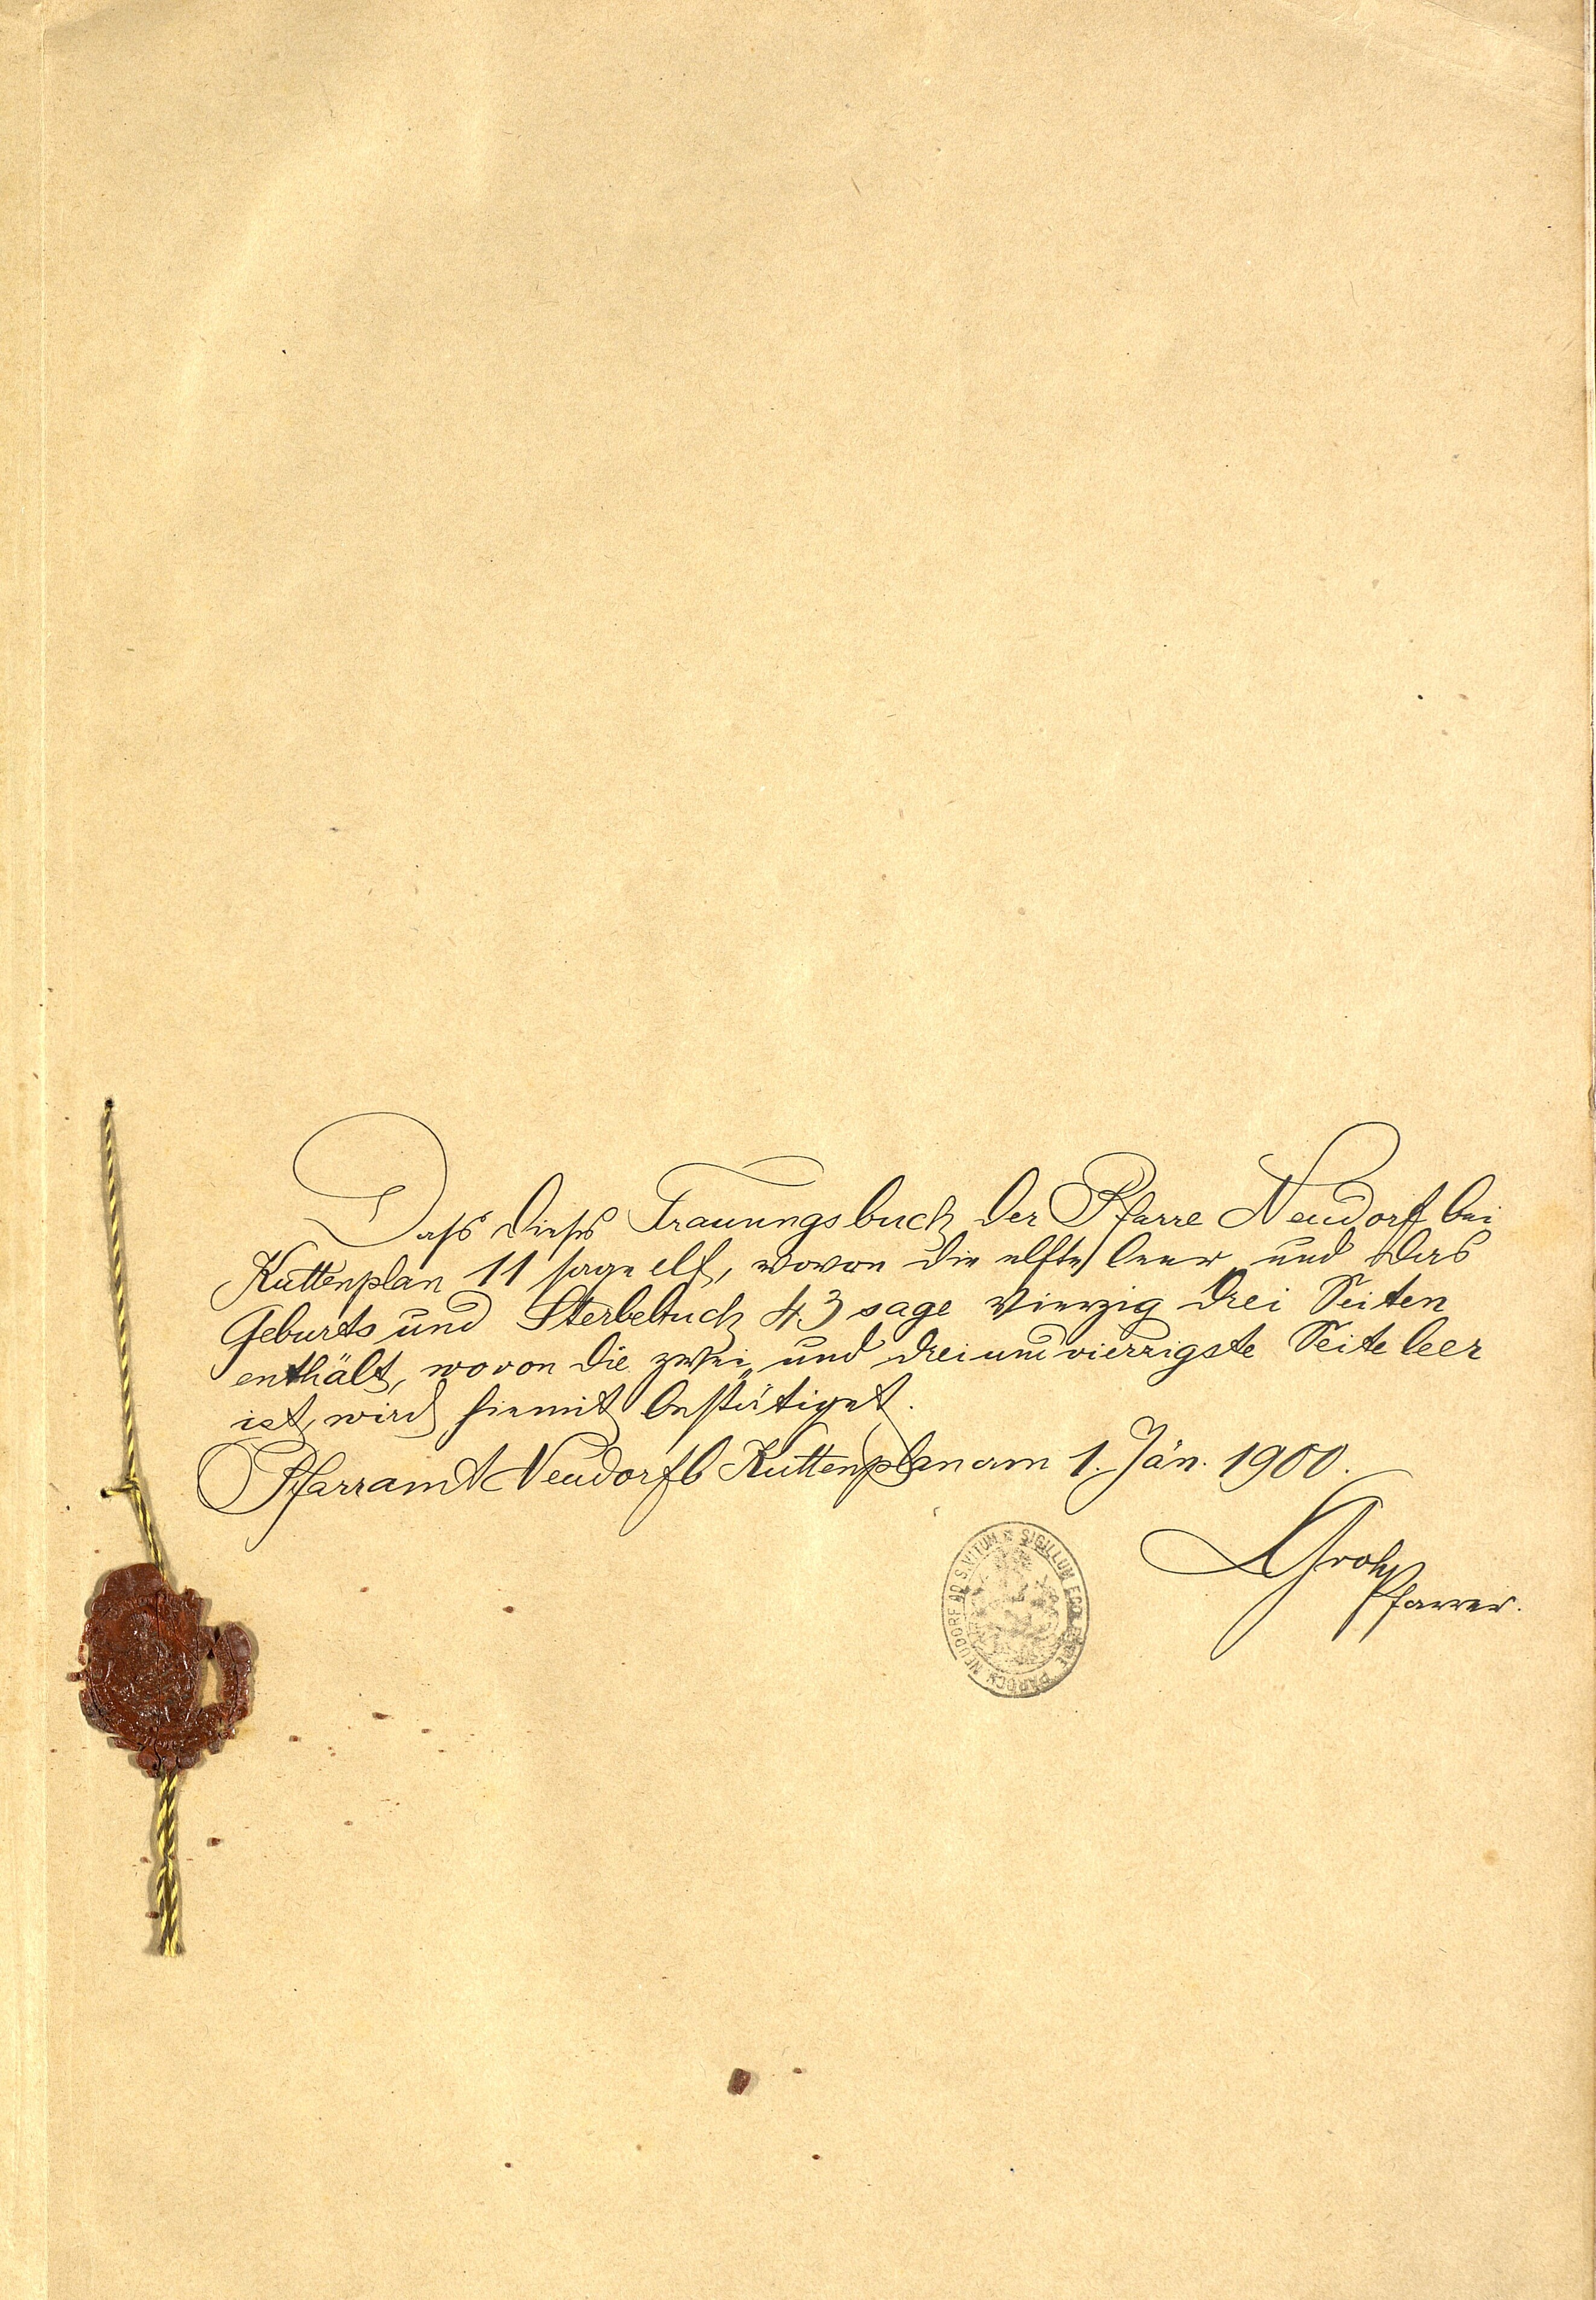 Dass dieses Trauungsbuch der Pfarre Neudorf bei
Kuttenplan 11 sage elf, wovon die elfte leer und das
Geburts und Sterbebuch 43 sage vierzig drei Seiten
enthält, wovon die zwei „ und dreiundvierzigste Seite leer
ist, wird hiemit bestätiget.
Pfarramt Neudorf b Kuttenplan am 1. Jän. 1900.
Groh
Pfarrer.
SIGILLUM ECCLESIAE PAROCH NEUDORF AD S. VITUM